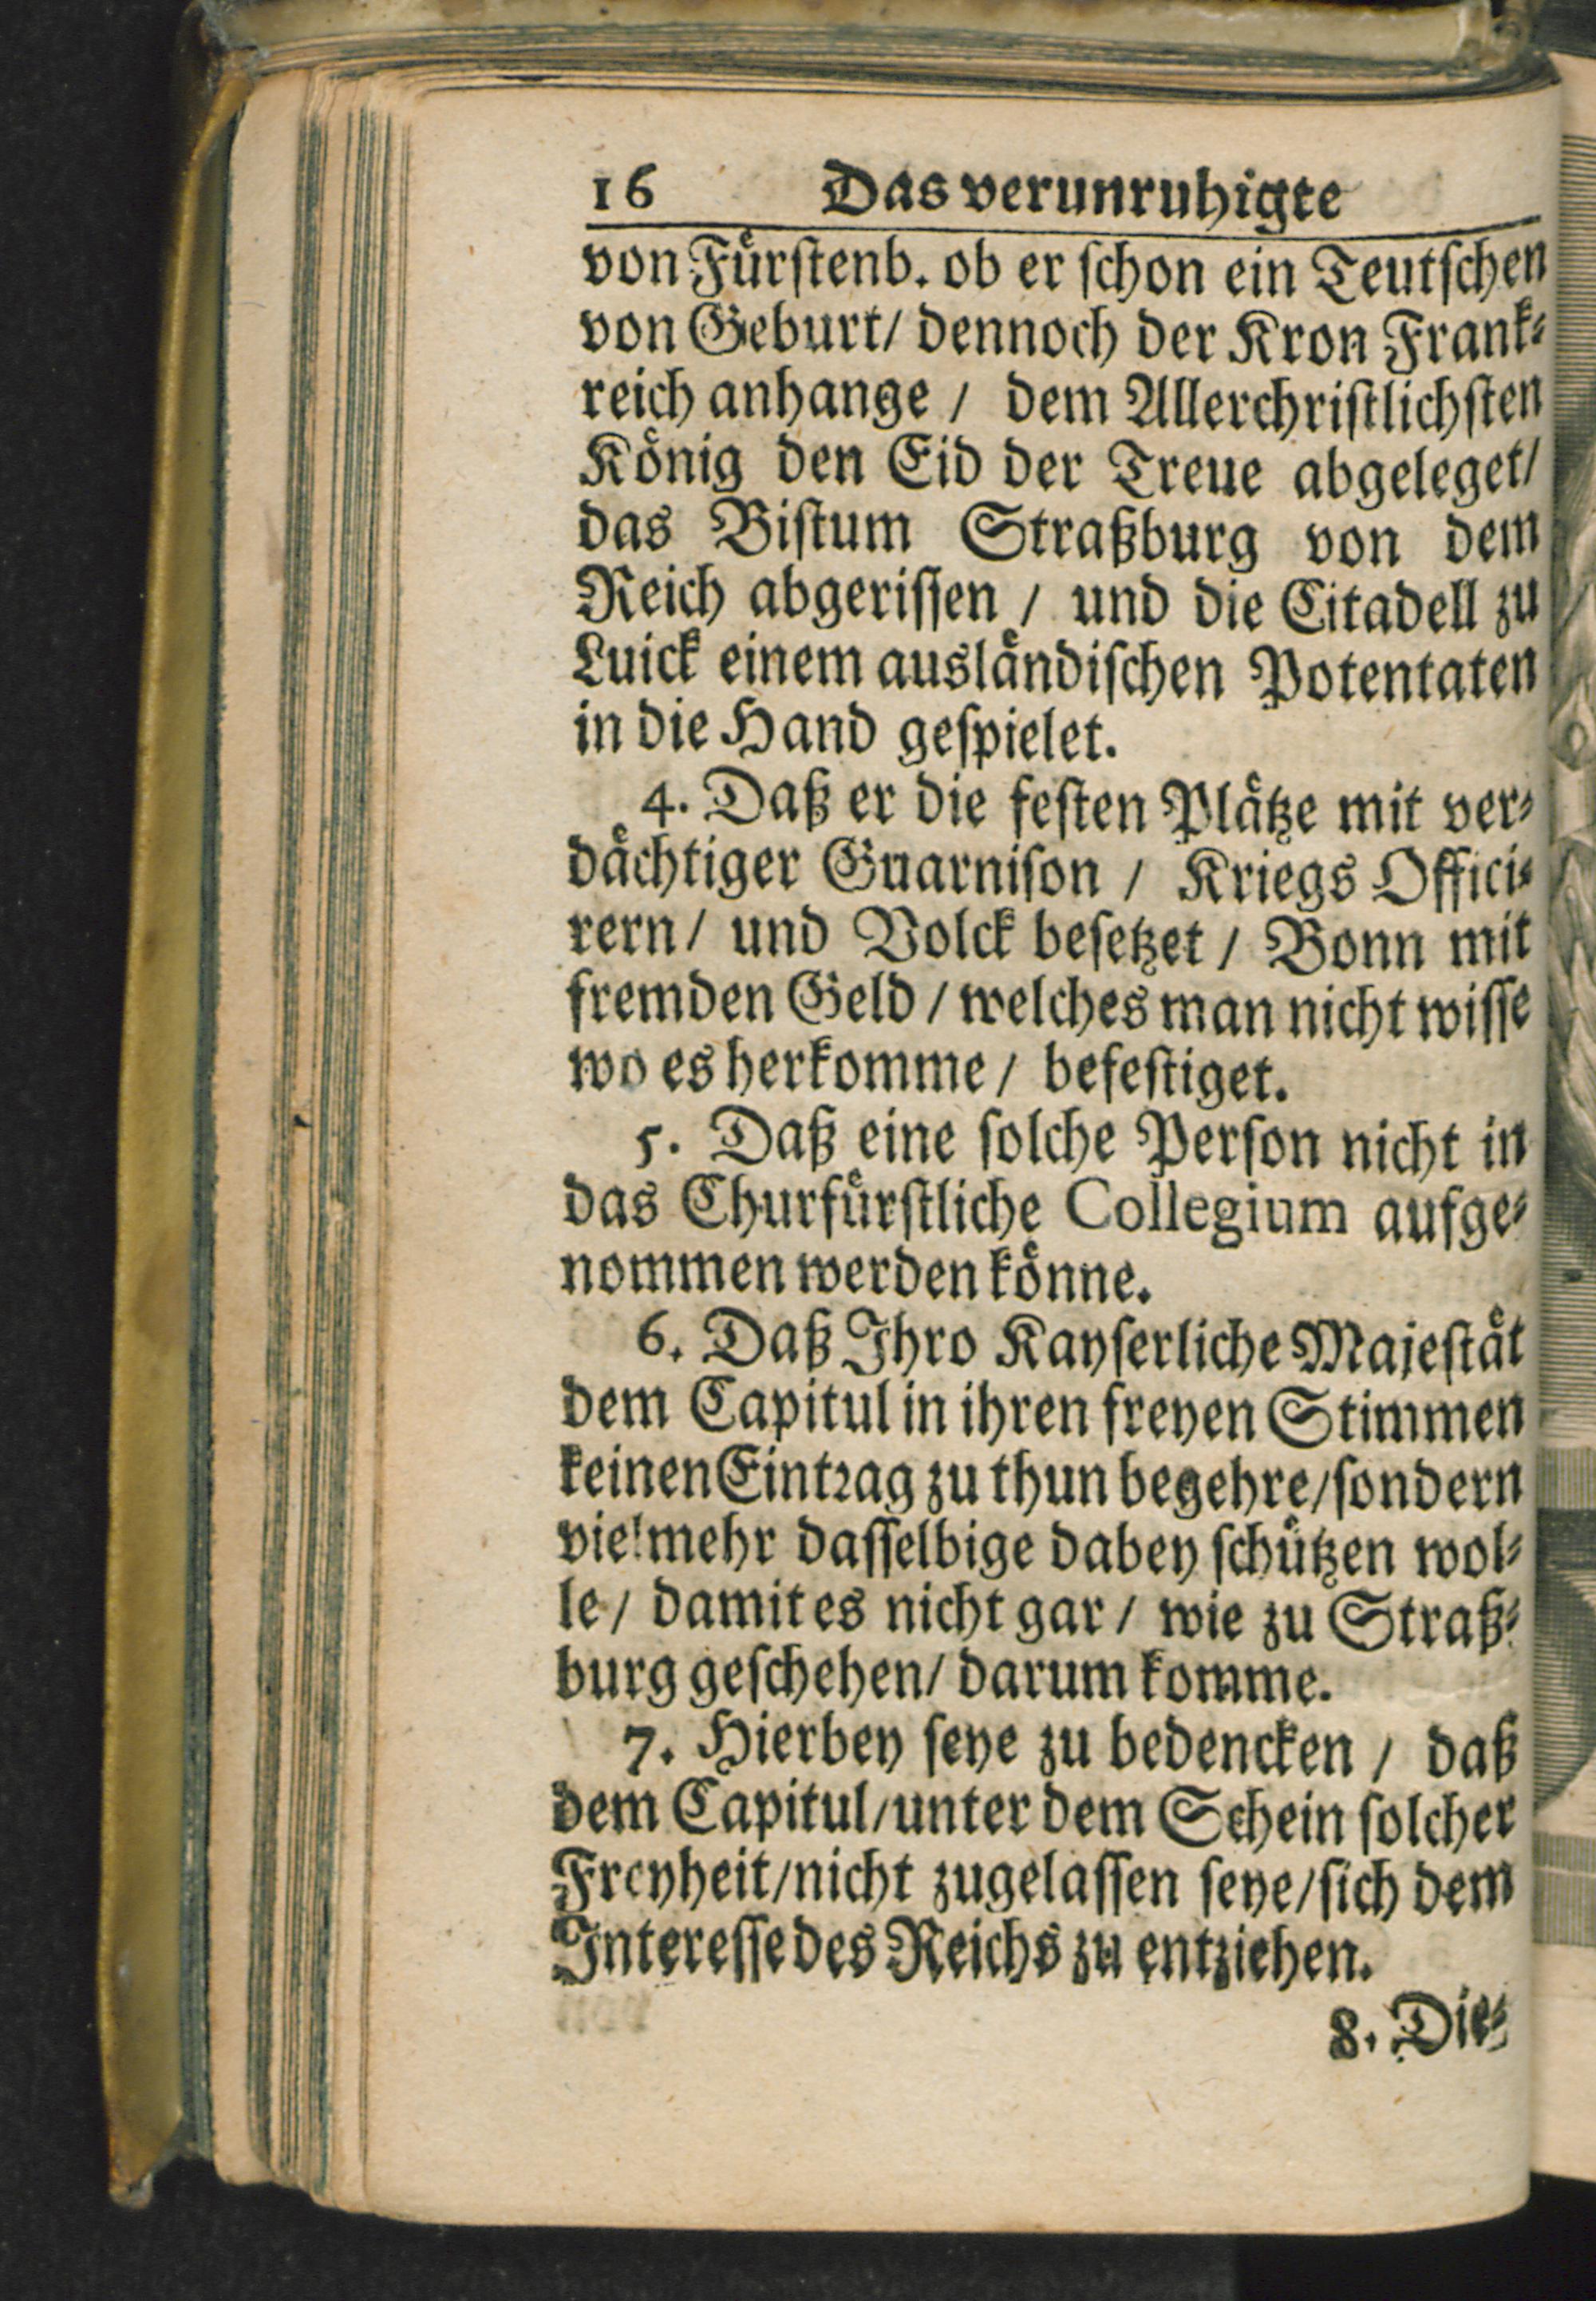 16 Das verunruhigte
von Fürſtenb. ob er ſchon ein Teutſchen
von Geburt/ dennoch der Kron Frank⸗
reich anhange / dem Allerchriſtlichſten
König den Eid der Treue abgeleget/
das Biſtum Straßburg von dem
Reich abgeriſſen / und die Citadell zu
Luick einem ausländiſchen Potentaten
in die Hand geſpielet.
4. Daß er die feſten Plätze mit ver⸗
dächtiger Guarniſon / Kriegs Offici⸗
rern/ und Volck beſetzet / Bonn mit
fremden Geld / welches man nicht wiſſe
wo es herkomme / befeſtiget.
5. Daß eine ſolche Perſon nicht in
das Churfürſtliche Collegium aufge⸗
nommen werden könne.
6. Daß Ihro Kayſerliche Majeſtät
dem Capitul in ihren freyen Stimmen
keinen Eintrag zu thun begehre/ſondern
vielmehr daſſelbige dabey ſchützen wol⸗
le/ damit es nicht gar / wie zu Straß⸗
burg geſchehen/ darum komme.
7. Hierbey ſeye zu bedencken / daß
dem Capitul/unter dem Schein ſolcher
Freyheit/nicht zugelaſſen ſeye/ſich dem
Intereſſe des Reichs zu entziehen.
8. Die⸗